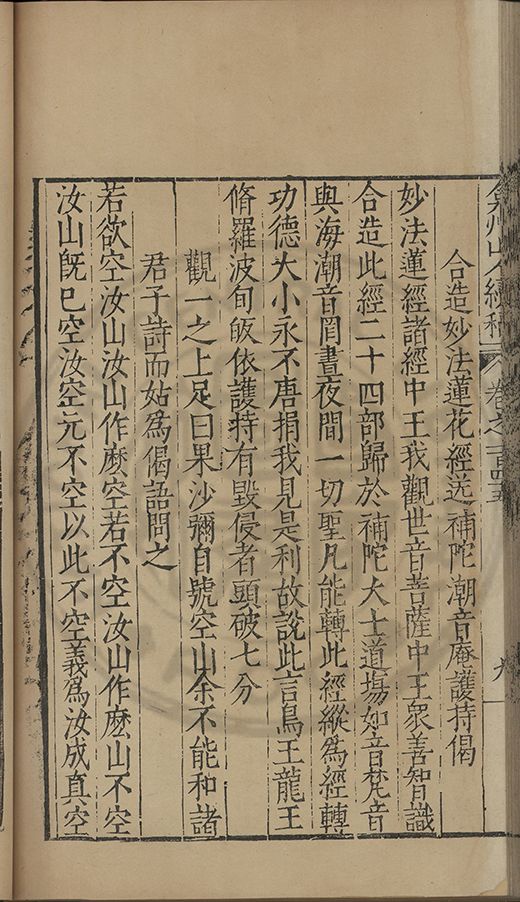 弇州山人續稿 卷之一百四十五 九
合造妙法蓮花經送補陀潮音庵護持偈
妙法蓮經諸經中王我觀世音菩薩中王衆善智識
合造此經二十四部歸於補陀大士道場如音梵音
與海潮音罔晝夜間一切聖凡能轉此經縱爲經轉
功德大小永不唐捐我見是利故說此言鳥王龍王
脩羅波旬皈依護持有毀侵者頭破七分
觀一之上足曰果沙彌自號空山余不能和諸
君子詩而姑爲偈語問之
若欲空汝山汝山作麽空若不空汝山作麽山不空
汝山旣已空汝空元不空以此不空義爲汝成真空